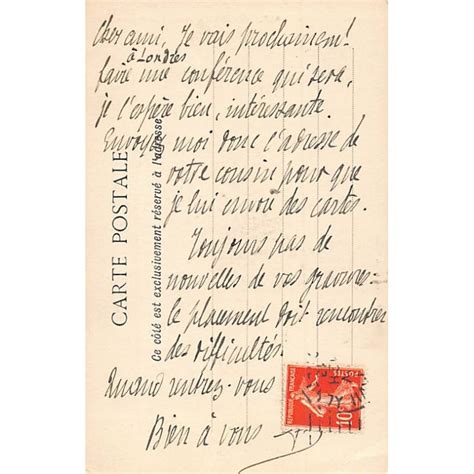 Cher ami, Je vais prochainement
à Londres
faire une conférence qui sera,
je l'espère bien, intéressante.
Envoyez moi donc l'adresse de
votre cousin pour que
je lui envoie des cartes.
Toujours pas de
nouvelles de vos gravures:
le placement doit rencontrer
des difficultés.
Quand rentrez-vous
Bien à vous
CARTE POSTALE
Ce côté est exclusivement réservé à l'adresse
REPUBLIQUE FRANÇAISE
POSTES
10